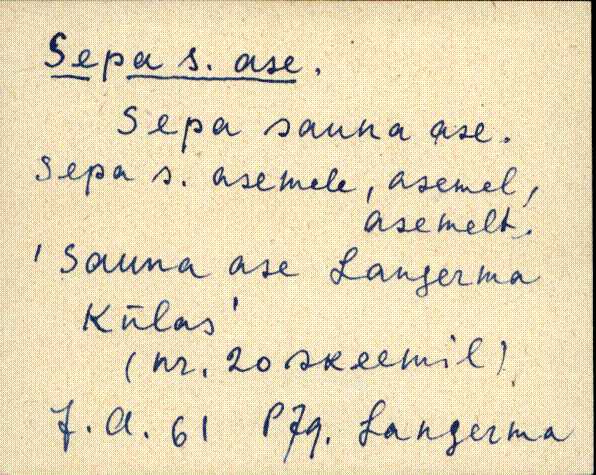 Sepa s. ase.
Sepa sauna ase.
Sepa s. asemele, asemel,
asemelt.
'Sauna ase Langerma
Külas'
(nr. 20 skeemil)
J. A. 61 PJg. Langerma